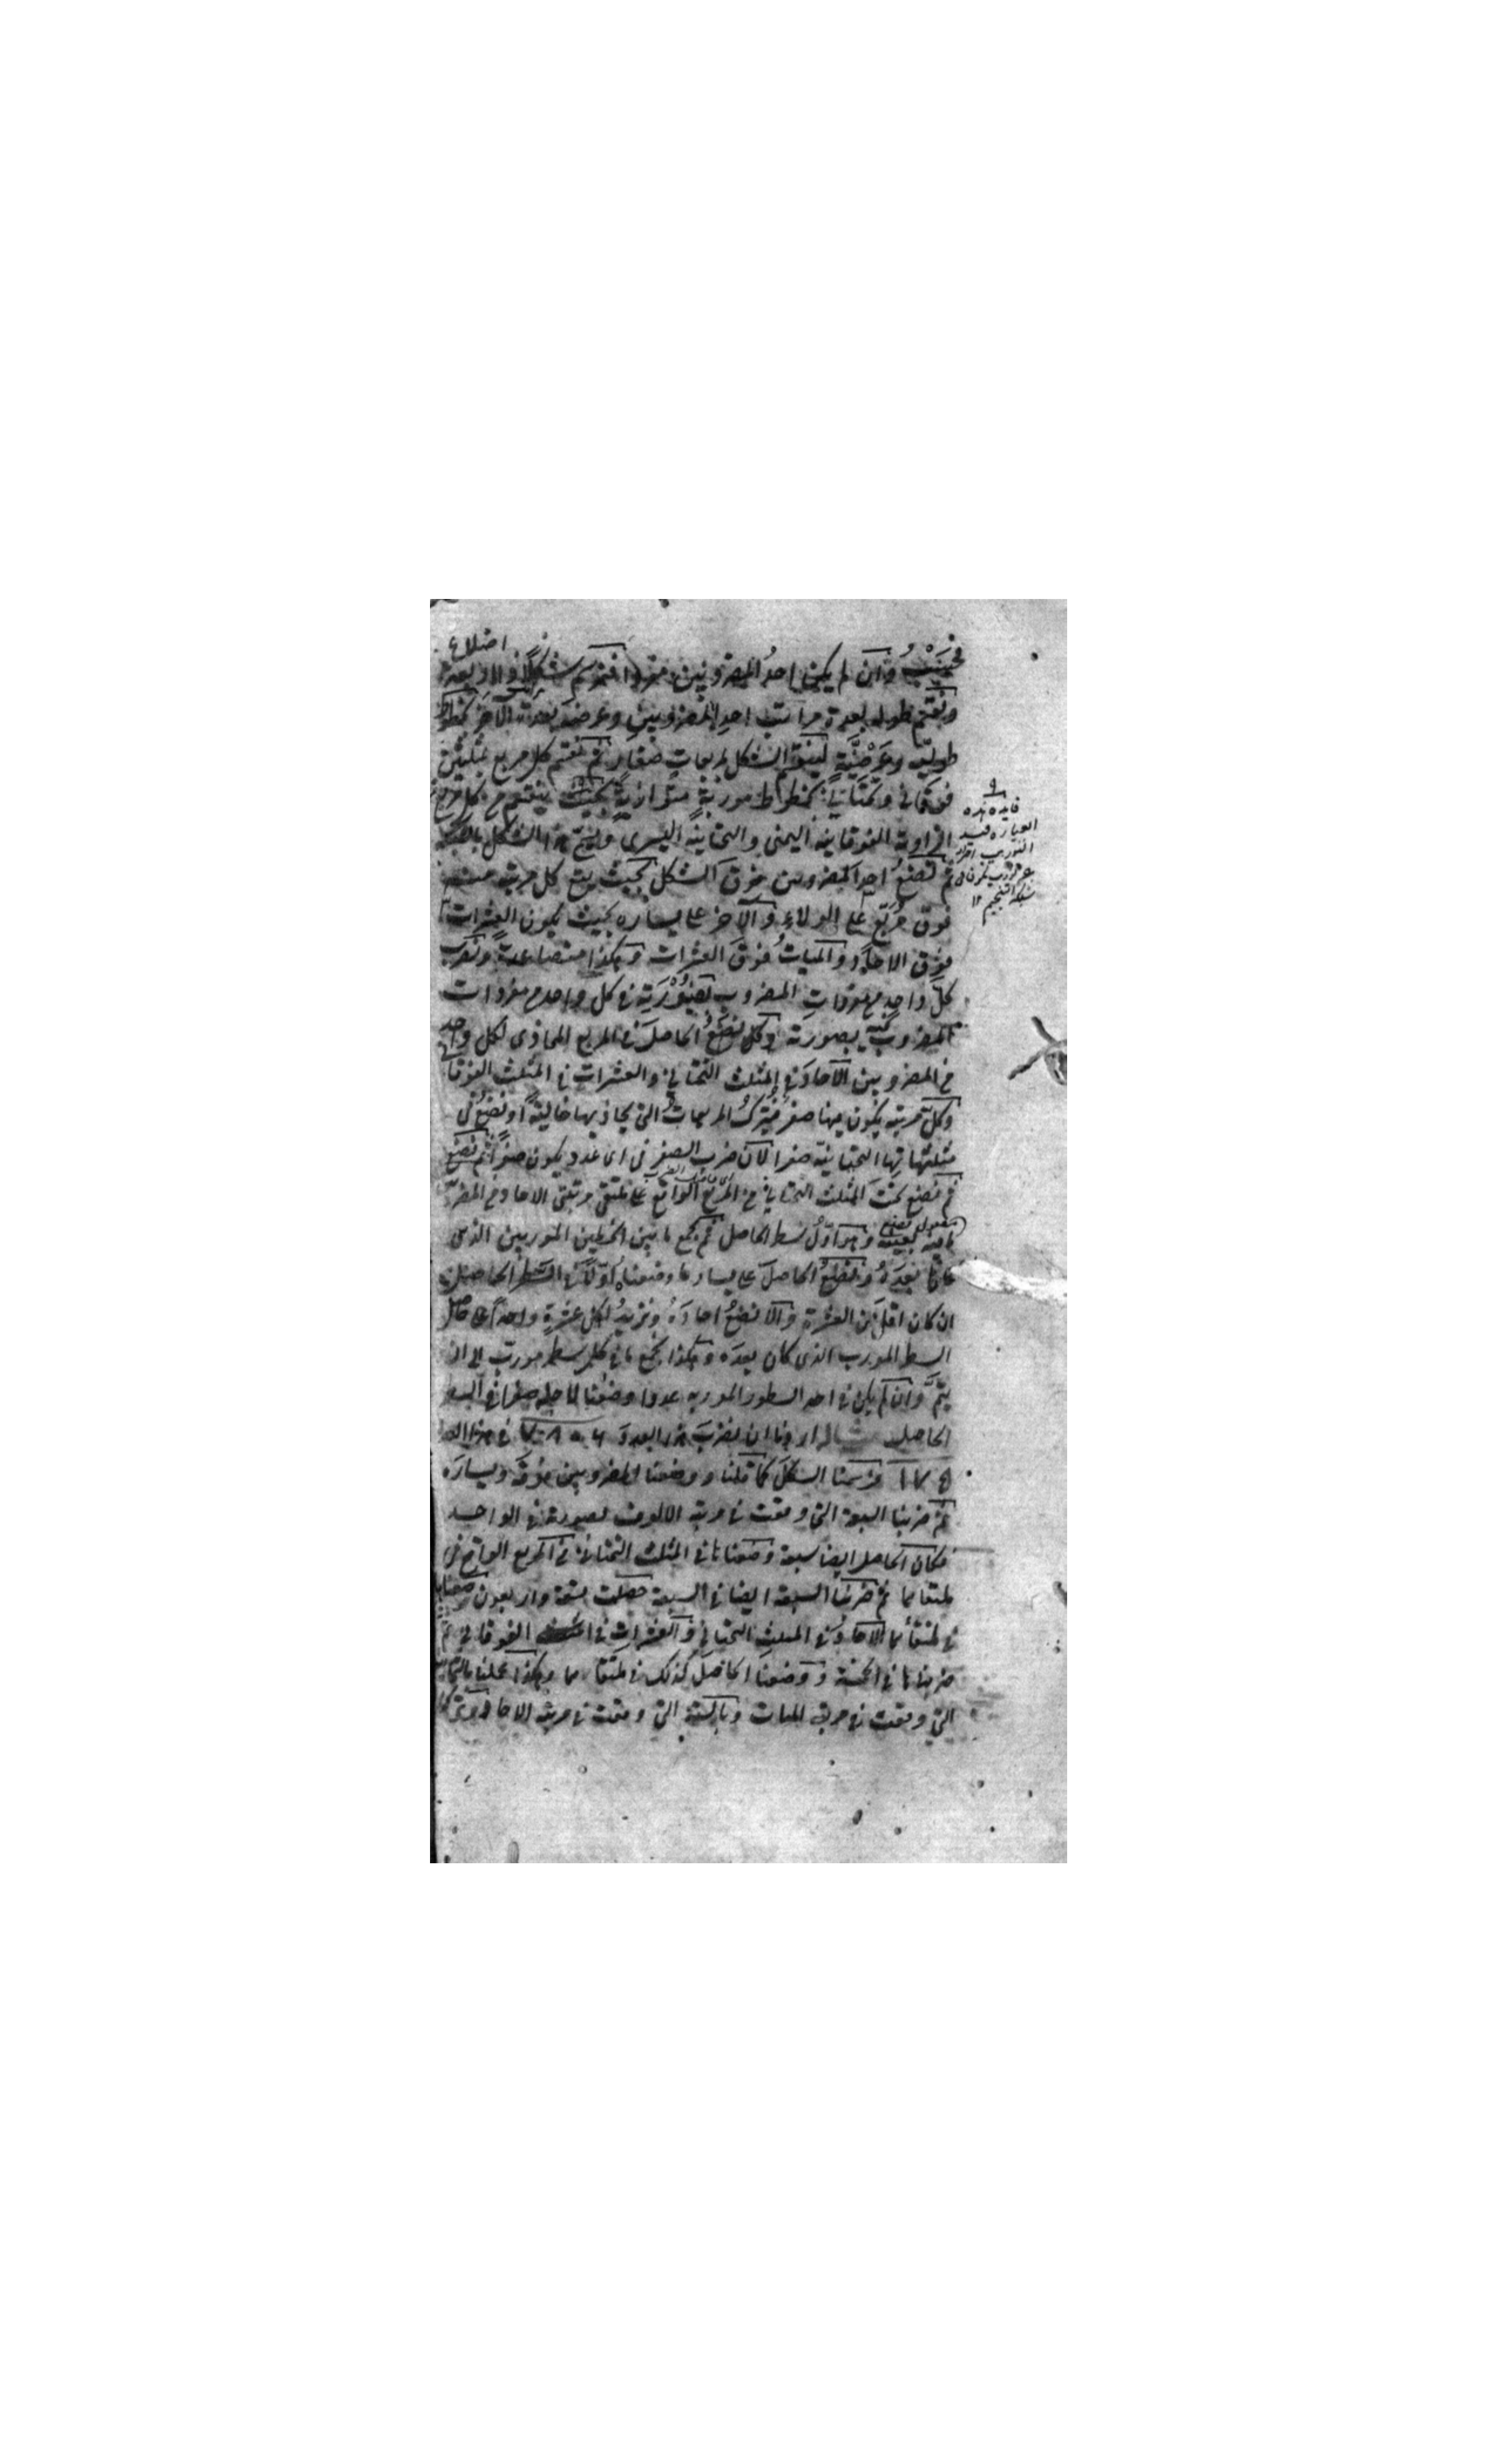 فحينئذ وان لم يكن احد المضروبين مفردا فنرسم شكلا ذا اربعة اضلاع
ونقسم طوله بعدة مراتب احد المضروبين وعرضه بعدة الآخر بخطوط
طولية وعرضية لينقسم الشكل بمربعات صغار ثم نقسم كل مربع بمثلثين
فوقاني وتحتاني بخطوط موربة متوازية بحيث ينقسم من كل مربع
الزاوية الفوقانية اليمنى والتحتانية اليسرى ويسمى هذا الشكل بالشبكة
ثم نضع احد المضروبين فوق الشكل بحيث يقع كل مرتبة منه
فوق مربع على الولاء والآخر على يساره بحيث يكون العشرات
فوق الاحاد والمئات فوق العشرات وهكذا متصاعدة ونضرب
كل واحد من مفردات المضروب بصورته في كل واحد من مفردات
المضروب فيه بصورته ونضع الحاصل في المربع المحاذى لكل واحد
من المضروبين الآحاد في المثلث التحتاني والعشرات في المثلث الفوقاني
وكل مرتبة يكون فيها صفر فيترك المربعات التي يحاذيها خالية او نضع في
مثلثاتها التحتانية صفرا لان ضرب الصفر في اى عدد يكون صفرا ثم نضع
ثم نضع تحت المثلث التحتاني من المربع الواقع على ملتقى مرتبتي الاحاد من المضروبين
ما فيه بعينه وهو اول سطر الحاصل ثم نجمع ما بين الخطين الموربين الذين
كانا بعده ونضع الحاصل على يسار ما وضعناه اولا في السطر الحاصل
ان كان اقل من العشرة والا نضع احاده ونزيد لكل عشرة واحدا على حاصل
السطر المورب الذى كان بعده وهكذا نجمع ما في كل سطر مورب الى ان
يتم وان لم يكن في احد السطور الموربة عدد وضعنا لاجله صفرا في السطر
الحاصل مثاله اردنا ان نضرب هذا العدد ٧٨٠٦ في هذا العدد
١٧٥ فرسمنا الشكل كما قلنا ووضعنا المضروبين فوقه ويساره
ثم ضربنا السبعة التي وقعت في مرتبة الالوف بصورته في الواحد
فكان الحاصل ايضا سبعة وضعناها في المثلث التحتاني من المربع الواقع في
ملتقاهما ثم ضربنا السبعة ايضا في السبعة حصلت تسعة واربعون وضعناها
في ملتقاهما الاحاد في المثلث التحتاني والعشرات في المثلث الفوقاني ثم
ضربناها في الخمسة ووضعنا الحاصل كذلك في ملتقاهما وهكذا عملنا بالثمانية
التي وقعت في مرتبة المئات وبالستة التي وقعت في مرتبة الاحاد
فايده هذه
العبارة قيد
التوريب احتراز